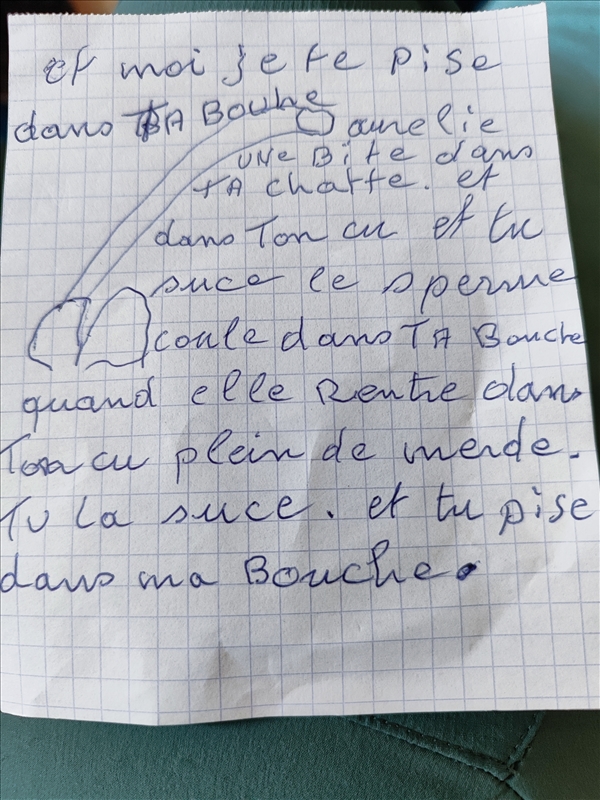 et moi je te pise
dans TA Bouhe
aurelie
UNe Bite dans
TA chatte. et
dans Ton cu et tu
suce le sperme
coule dans TA Bouche
quand elle Rentre dans
Ton cu plein de merde.
Tu la suce. et tu pise
dans ma Bouche.